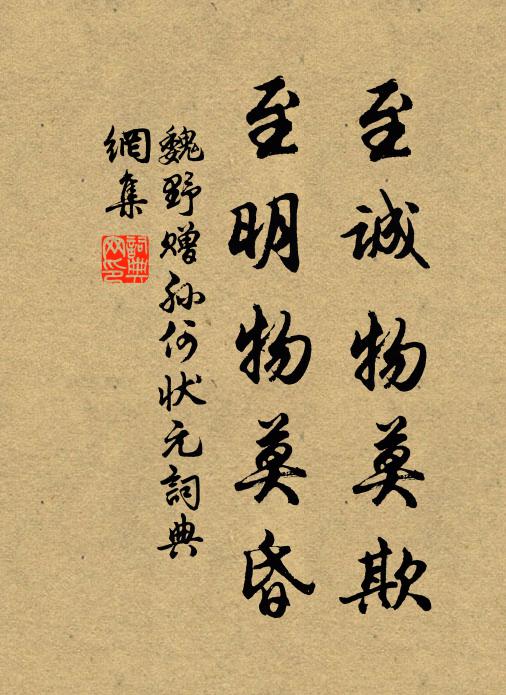 至诚物莫欺
至明物莫昏
魏野赠孙何状元詞典
網集
詞典
网印